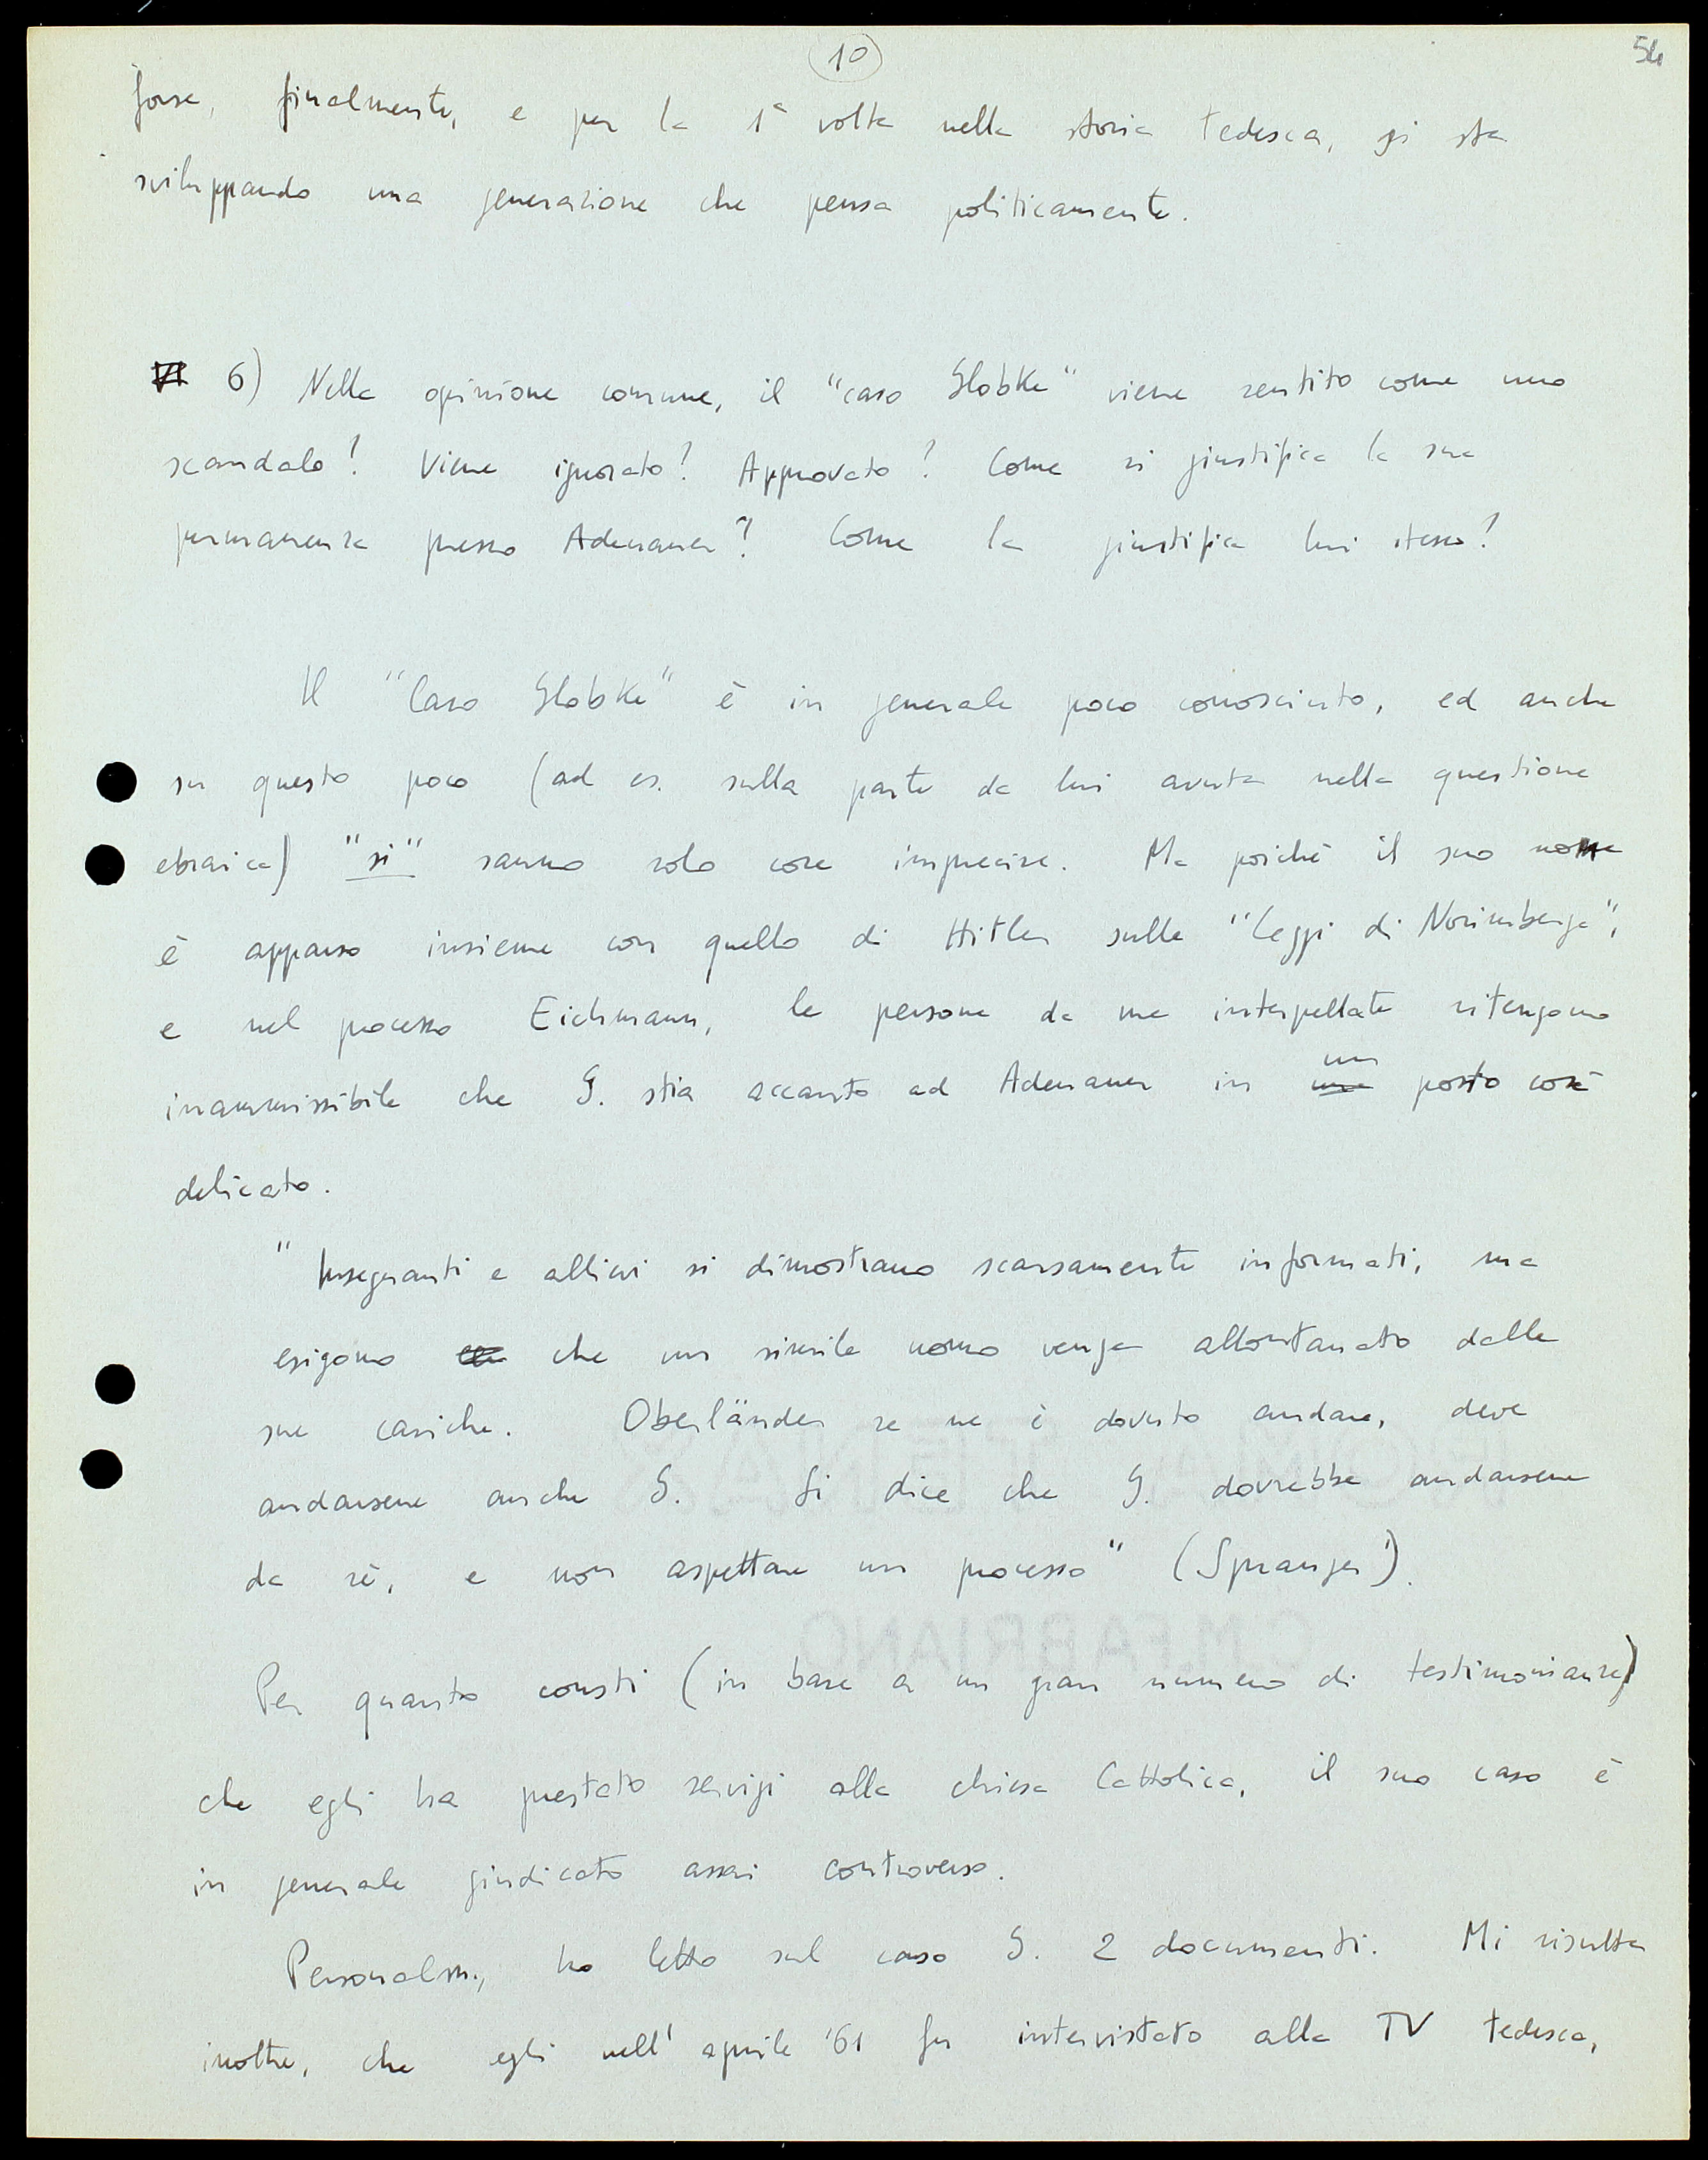 10
54
forse, finalmente, e per la 1ª volta nella storia tedesca, si sta
sviluppando una generazione che pensa politicamente.
VI 6) Nella opinione comune, il "caso Globke" viene sentito come uno
scandalo? Viene ignorato? Approvato? Come si giustifica la sua
permanenza presso Adenauer? Come la giustifica lui stesso?
Il "Caso Globke" è in generale poco conosciuto, ed anche
su questo poco (ad es. sulla parte da lui avuta nella questione
ebraica) "si" sanno solo cose imprecise. Ma poiché il suo nome
è apparso insieme con quello di Hitler sulle "Leggi di Norimberga",
e nel processo Eichmann, le persone da me interpellate ritengono
inammissibile che G. stia accanto ad Adenauer in un posto così
delicato.
"Insegnanti e allievi si dimostrano scarsamente informati, ma
esigono che un simile uomo venga allontanato dalle
sue cariche. Oberländer se ne è dovuto andare, deve
andarsene anche G. Si dice che G. dovrebbe andarsene
da sè, e non aspettare un processo" (Spranger).
Per quanto consti (in base a un gran numero di testimonianze)
che egli ha prestato servigi alla chiesa Cattolica, il suo caso è
in generale giudicato assai controverso.
Personalm., ho letto sul caso G. 2 documenti. Mi risulta
inoltre, che egli nell'aprile '61 fu intervistato alla TV tedesca,
C.M.FABRIANO